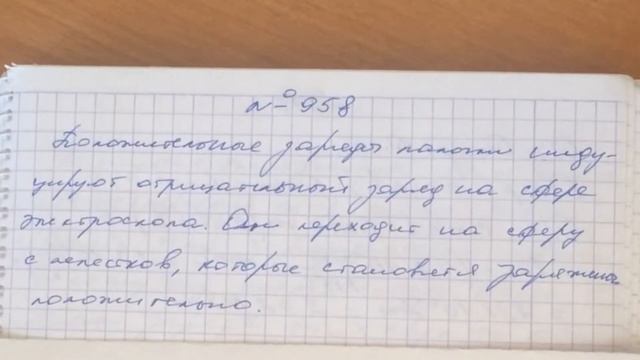 № 958
Положительные заряды палочки инду-
цируют отрицательный заряд на сфере
электроскопа. Он переходит на сферу
с лепестков, которые становятся заряжены
положительно.